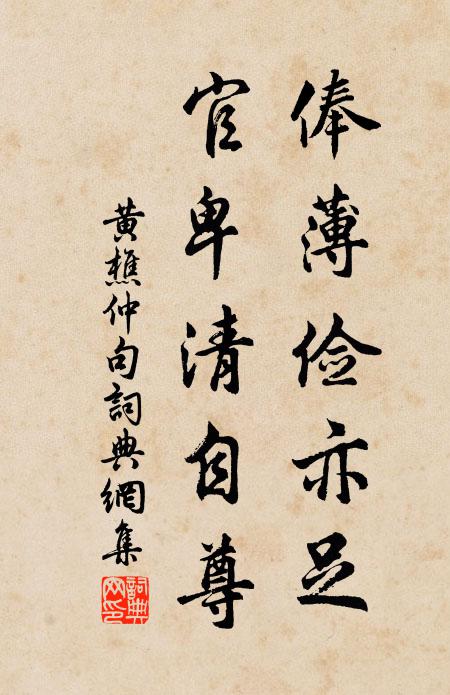 俸薄俭亦足
官卑清自尊
黄樵仲句詞典網集
詞典網印